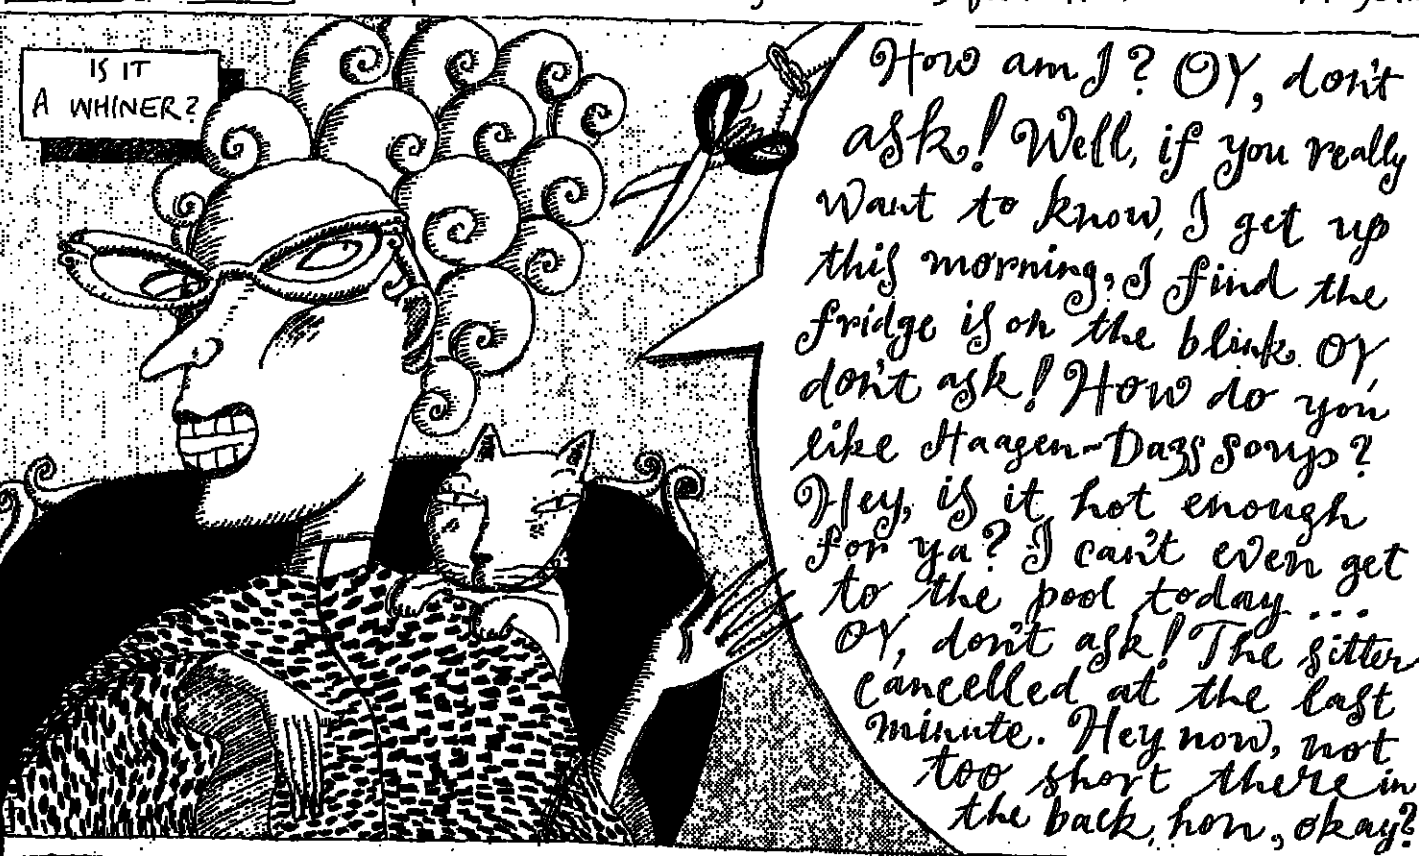 IS IT
A WHINER?
How am I? OY, don't
ask! Well, if you really
want to know, I get up
this morning, I find the
fridge is on the blink. OY,
don't ask! How do you
like Haagen-Dazs soup?
Hey, is it hot enough
for ya? I can't even get
to the pool today...
OY, don't ask! The sitter
cancelled at the last
minute. Hey now, not
too short there in
the back, hon, okay?